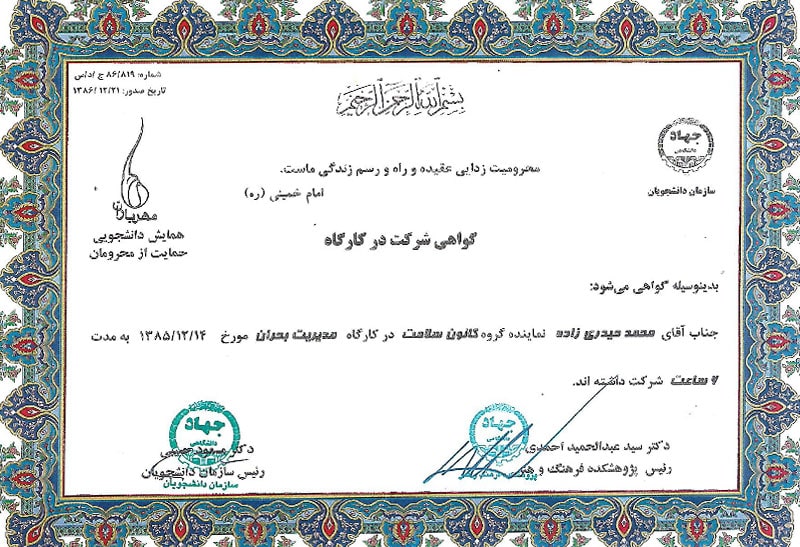 شماره: ۸۶/۸۱۹ ج /د/س
تاریخ صدور: ۱۳۸۶/۱۲/۲۱
بسم الله الرحمن الرحیم
جهاد
دانشگاهی
سازمان دانشجویان
مهریاران
همایش دانشجویی
حمایت از محرومان
محرومیت زدایی عقیده و راه و رسم زندگی ماست.
امام خمینی (ره)
گواهی شرکت در کارگاه
بدینوسیله گواهی می‌شود:
جناب آقای محمد حیدری زاده نماینده گروه کانون سلامت در کارگاه مدیریت بحران مورخ ۱۳۸۵/۱۲/۱۴ به مدت
۷ ساعت شرکت داشته اند.
جهاد
دانشگاهی
دکتر سید عبدالحمید احمدی
رئیس پژوهشکده فرهنگ و هنر
جهاد
دانشگاهی
دکتر مسعود حبیبی
رئیس سازمان دانشجویان
سازمان دانشجویان